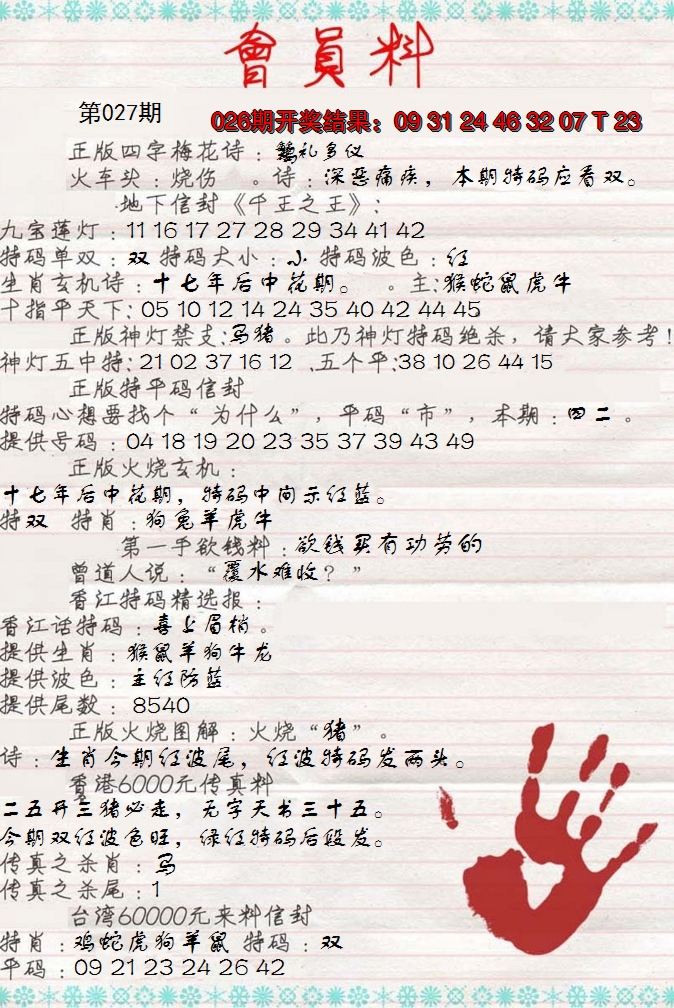 會員料
第027期
026期开奖结果：09 31 24 46 32 07 T 23
正版四字梅花诗：鵝礼多仪
火车头：烧伤 。诗：深恶痛疾，本期特码应看双。
地下信封《千王之王》：
九宝莲灯：11 16 17 27 28 29 34 41 42
特码单双：双 特码大小：小 特码波色：红
生肖玄机诗：十七年后中花期。 。主：猴蛇鼠虎牛
十指平天下：05 10 12 14 24 35 40 42 44 45
正版神灯禁支：马猪。此乃神灯特码绝杀，请大家参考！
神灯五中特：21 02 37 16 12 、五个平：38 10 26 44 15
正版特平码信封
特码心想要找个“为什么”，平码“市”，本期：四二。
提供号码：04 18 19 20 23 35 37 39 43 49
正版火烧玄机：
十七年后中花期，特码中间示红蓝。
特双 特肖：狗兔羊虎牛
第一手欲钱料：欲钱买有功劳的
曾道人说：“覆水难收？”
香江特码精选报：
香江话特码：喜上眉梢。
提供生肖：猴鼠羊狗牛龙
提供波色：主红防蓝
提供尾数：8540
正版火烧图解：火烧“猪”。
诗：生肖今期红波尾，红波特码发两头。
香港6000元传真料
二五开三猪必走，无字天书三十五。
今期双红波色旺，绿红特码后段发。
传真之杀肖：马
传真之杀尾：1
台湾60000元来料信封
特肖：鸡蛇虎狗羊鼠 特码：双
平码：09 21 23 24 26 42